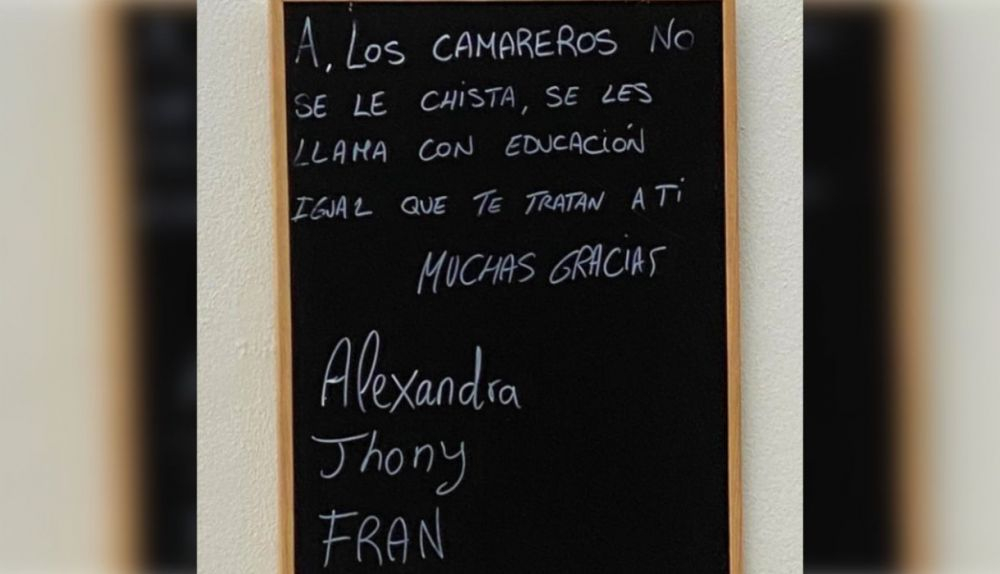 A, LOS CAMAREROS NO
SE LE CHISTA, SE LES
LLAMA CON EDUCACIÓN
IGUAL QUE TE TRATAN A Ti
MUCHAS GRACIAS
Alexandra
Jhony
FRAN